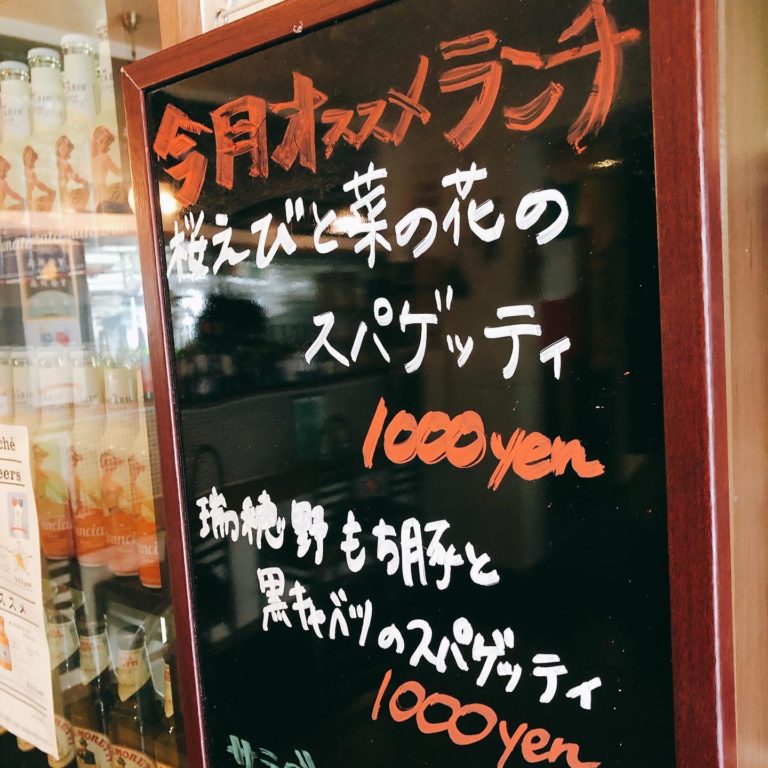 今月オススメランチ
桜えびと菜の花の
スパゲッティ
1000yen
瑞穂野もち豚と
黒キャベツのスパゲッティ
1000yen
サラダ
ché
eers
ススメ
ancia
MORETTI